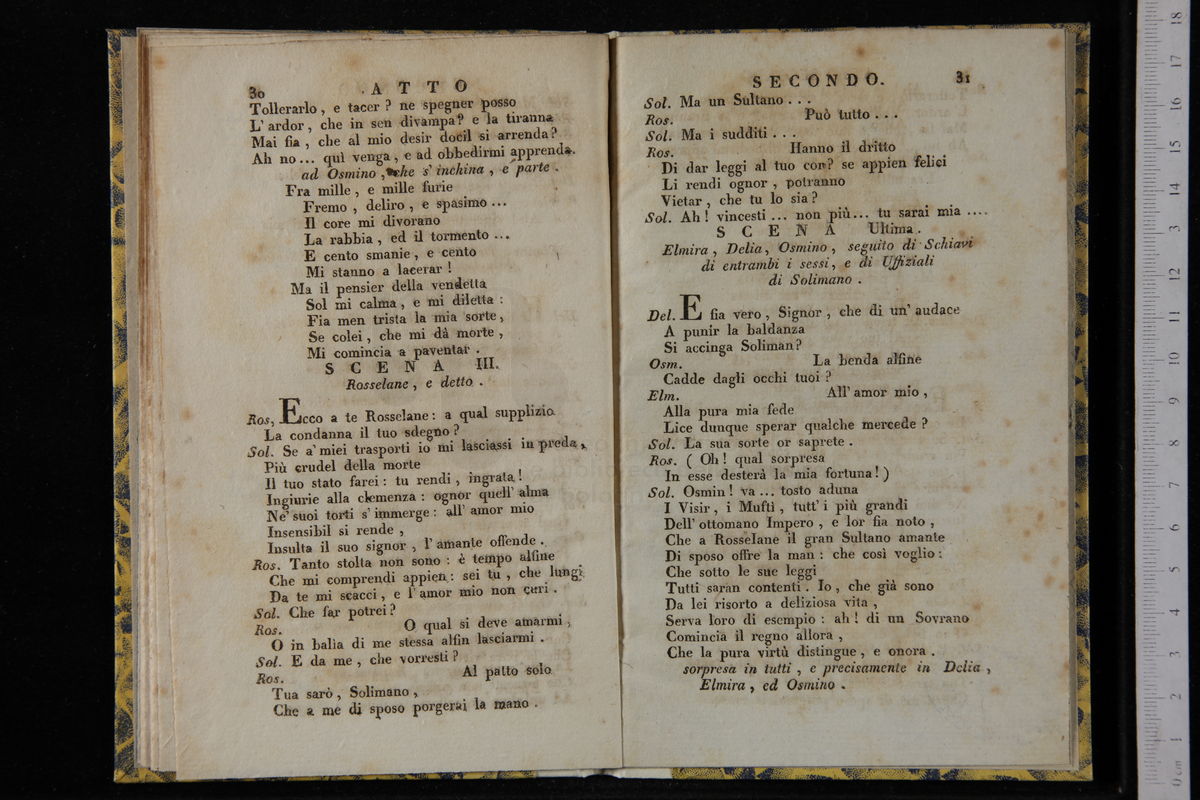 30 . A T T O
Tollerarlo , e tacer ? ne spegner posso
L' ardor , che in sen divampa? e la tiranna
Mai fia , che al mio desir docil si arrenda?
Ah no ... quì venga , e ad obbedirmi apprenda.
ad Osmino , che s' inchina , e parte .
Fra mille , e mille furie
Fremo , deliro , e spasimo ...
Il core mi divorano
La rabbia , ed il tormento ...
E cento smanie , e cento
Mi stanno a lacerar !
Ma il pensier della vendetta
Sol mi calma , e mi diletta :
Fia men trista la mia sorte ,
Se colei , che mi dà morte ,
Mi comincia a paventar .
S C E N A III.
Rosselane , e detto .
Ros, Ecco a te Rosselane : a qual supplizio
La condanna il tuo sdegno ?
Sol. Se a' miei trasporti io mi lasciassi in preda ,
Più crudel della morte
Il tuo stato farei : tu rendi , ingrata !
Ingiurie alla clemenza : ognor quell' alma
Ne' suoi torti s' immerge : all' amor mio
Insensibil si rende ,
Insulta il suo signor , l' amante offende .
Ros. Tanto stolta non sono : è tempo alfine
Che mi comprendi appien : sei tu , che lungi
Da te mi scacci , e l' amor mio non curi .
Sol. Che far potrei ?
Ros. O qual si deve amarmi ,
O in balìa di me stessa alfin lasciarmi .
Sol. E da me , che vorresti ?
Ros. Al patto solo
Tua sarò , Solimano ,
Che a me di sposo porgerai la mano .
S E C O N D O . 31
Sol. Ma un Sultano . . .
Ros. Può tutto . . .
Sol. Ma i sudditi . . .
Ros. Hanno il dritto
Di dar leggi al tuo cor? se appien felici
Li rendi ognor , potranno
Vietar , che tu lo sia ?
Sol. Ah ! vincesti ... non più ... tu sarai mia ....
S C E N A Ultima .
Elmira , Delia , Osmino , seguito di Schiavi
di entrambi i sessi , e di Uffiziali
di Solimano .
Del. E fia vero , Signor , che di un' audace
A punir la baldanza
Si accinga Soliman?
Osm. La benda alfine
Cadde dagli occhi tuoi ?
Elm. All' amor mio ,
Alla pura mia fede
Lice dunque sperar qualche mercede ?
Sol. La sua sorte or saprete .
Ros. ( Oh ! qual sorpresa
In esse desterà la mia fortuna ! )
Sol. Osmin ! va ... tosto aduna
I Visir , i Muftì , tutt' i più grandi
Dell' ottomano Impero , e lor fia noto ,
Che a Rosselane il gran Sultano amante
Di sposo offre la man : che così voglio :
Che sotto le sue leggi
Tutti saran contenti . Io , che già sono
Da lei risorto a deliziosa vita ,
Serva loro di esempio : ah ! di un Sovrano
Comincia il regno allora ,
Che la pura virtù distingue , e onora .
sorpresa in tutti , e precisamente in Delia ,
Elmira , ed Osmino .
0 cm 1 2 3 4 5 6 7 8 9 10 11 12 13 14 15 16 17 18